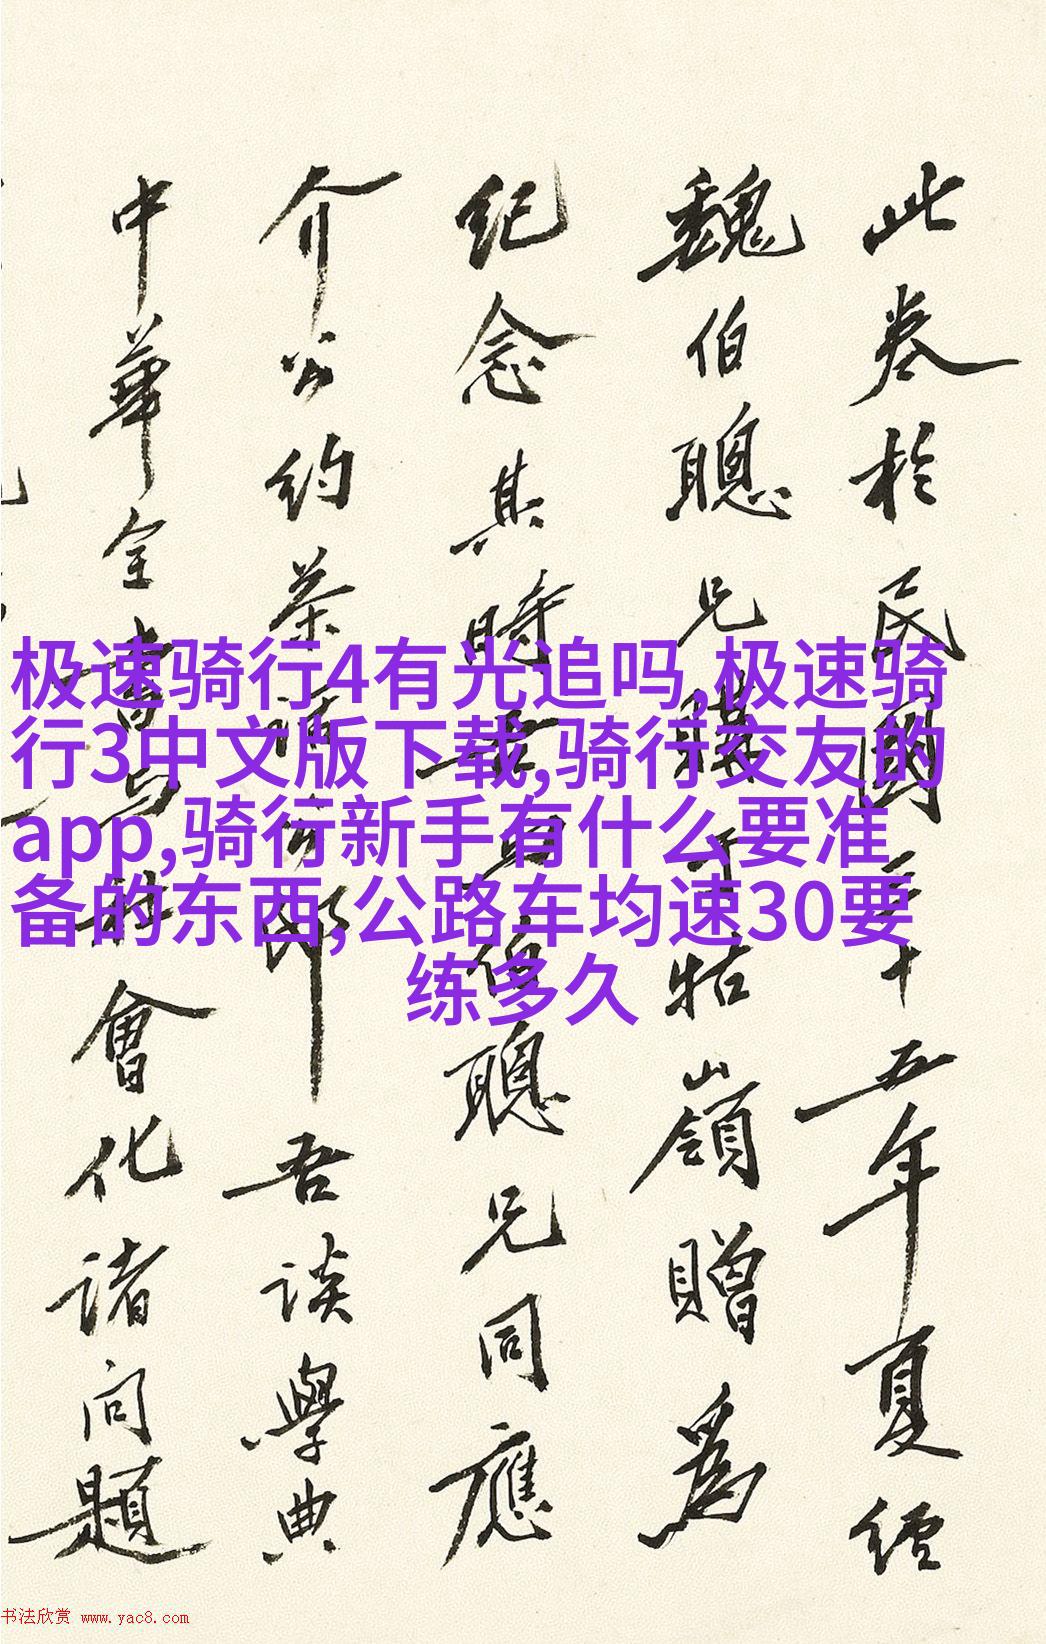 极速骑行4有光追吗,极速骑
行3中文版下载,骑行交友的
app,骑行新手有什么要准
备的东西,公路车均速30要
练多久
此卷於民國三十五年夏經
魏伯聰兄購于牯嶺贈爲
紀念其時吾與伯聰兄同應
介公約茶話之邸吾談學典
中華全書与社會化诸问題
书法欣赏 www.yac8.com